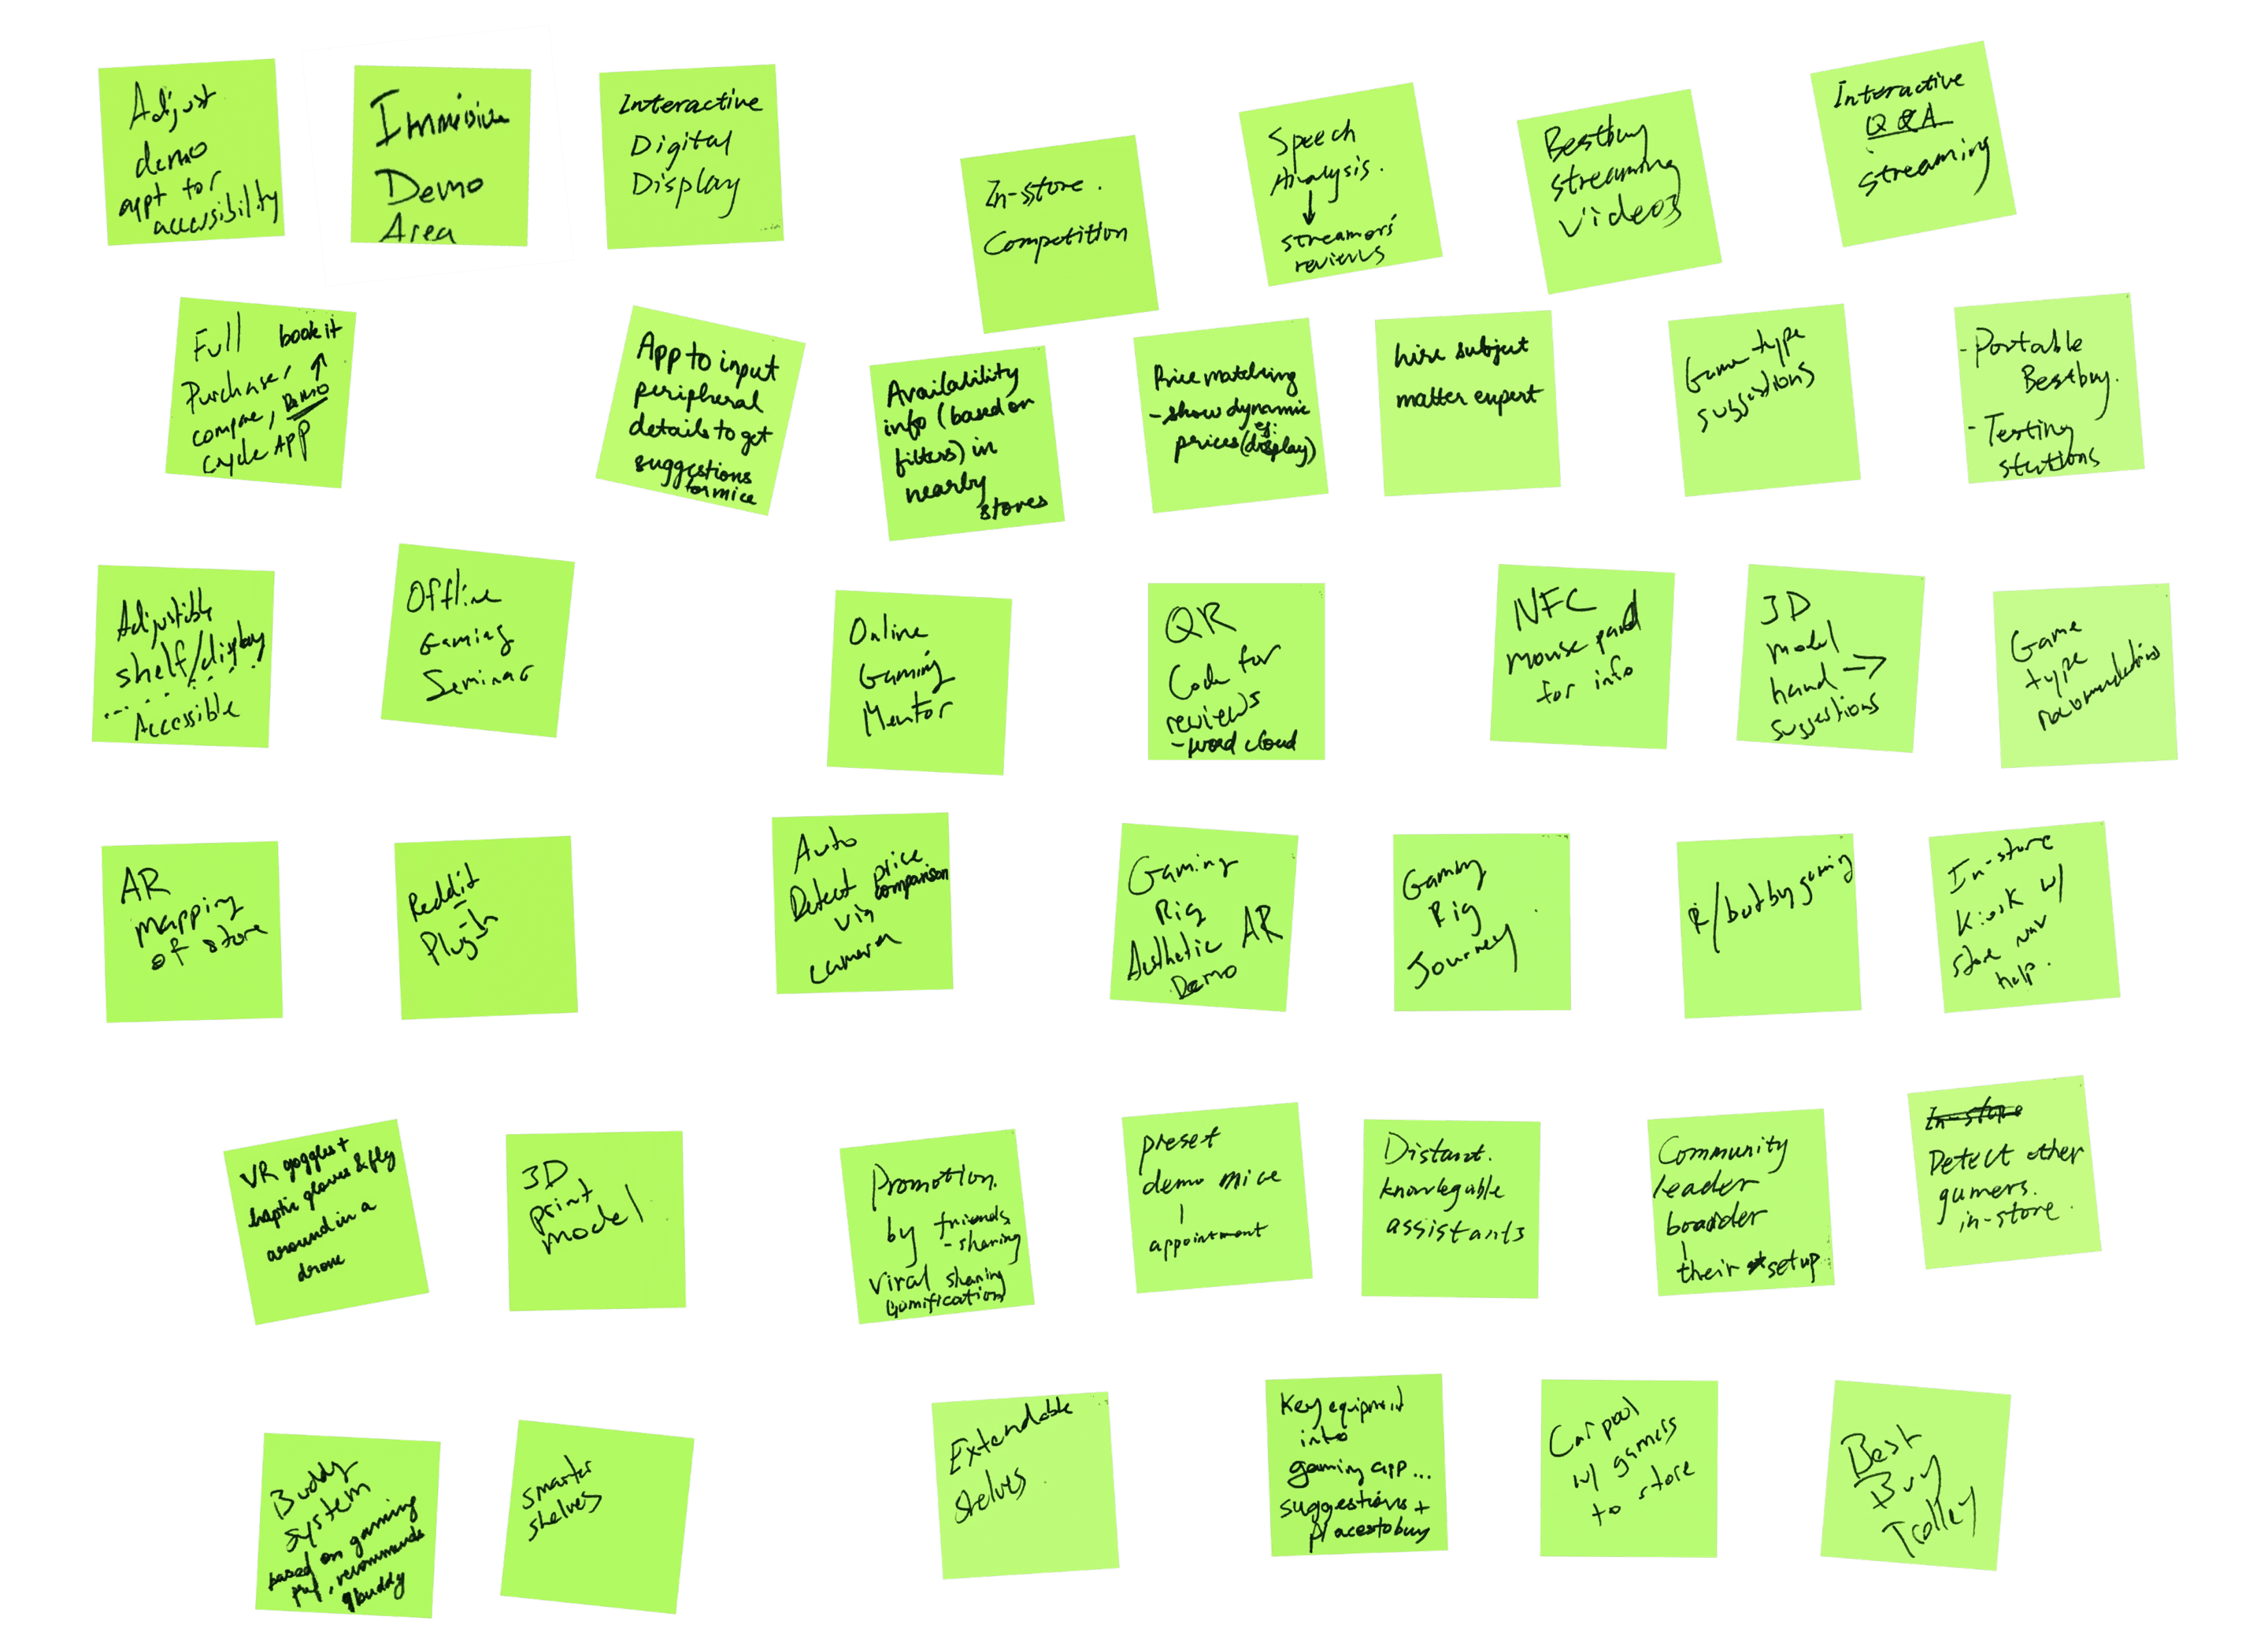 Adjust
demo
appt for
accessibility
Immersive
Demo
Area
Interactive
Digital
Display
In-store.
Competition
Speech
Analysis.
↓
streamers'
reviews
Bestbuy
streaming
videos
Interactive
Q&A
streaming
Full book it
Purchase, ↑
compare, Demo
Cycle APP
App to input
peripheral
details to get
suggestions
for mice
Availability
info (based on
filters) in
nearby
stores
Price matching
- show dynamic
eg:
prices (display)
hire subject
matter expert
Game type
suggestions
- Portable
Bestbuy.
- Testing
stations
Adjustible
shelf/display
Accessible
Offline
Gaming
Seminar
Online
Gaming
Mentor
QR
Code for
reviews
- word cloud
NFC
mouse pad
for info
3D
model
hand →
suggestions
Game
type
recommendations
AR
mapping
of store
Reddit
Plug-In
Auto
Detect price
comparison
via
camera
Gaming
Rig
Aesthetic AR
Demo
Gaming
Rig
Journey
R/butbygaming
In-store
Kiosk w/
store nav
help.
VR goggles +
haptic gloves & fly
around in a
drone
3D
print
model
Promotion.
by friends
- sharing
viral sharing
Gamification
preset
demo mice
|
appointment
Distant.
knowlegable
assistants
Community
leader
boarder
|
their setup
In-store
Detect other
gamers.
in-store.
Buddy
system
based on gaming
pref, recommends
a buddy
smarter
shelves
Extendable
shelves
Key equipment
into
gaming app...
suggestions +
places to buy
Carpool
w/ gamers
to store
Best
Buy
Trolley